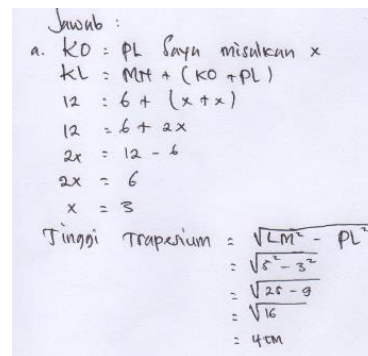 Jawab :
a. KO = PL Saya misalkan x
KL = MN + (KO + PL)
12 = 6 + (x + x)
12 = 6 + 2x
2x = 12 - 6
2x = 6
x = 3
Tinggi Trapesium = √LM² - PL²
= √5² - 3²
= √25 - 9
= √16
= 4 cm